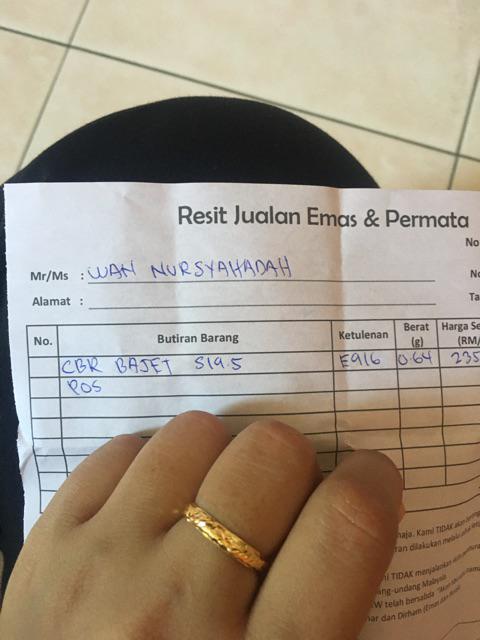 Resit Jualan Emas & Permata
No
Mr/Ms : WAN NURSYAHADAH
No
Alamat :
Ta
No. Butiran Barang Ketulenan Berat (g) Harga Se (RM/
CBR BAJET S19.5 E916 0.64 235
POS
haja. Kami TIDAK akan
ran dilakukan melalui
ni TIDAK menjalankan
ang-undang Malaysia
W telah bersabda
nar dan Dirham (Emas dan